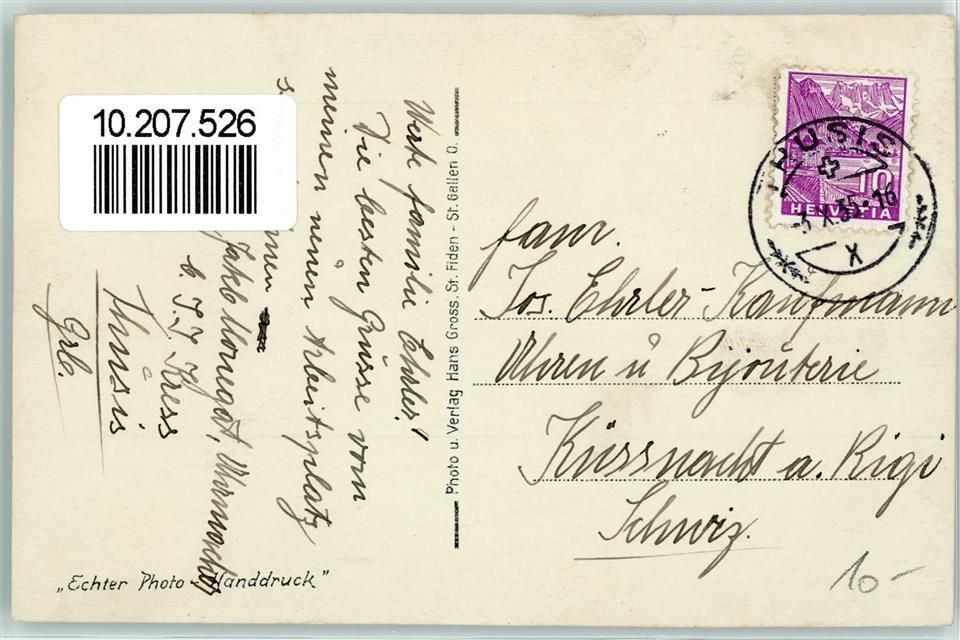 10.207.526
Werte familie Ehrler!
Die besten Grüsse vom
meinen neuen Arbeitsplatz
Jakb Monegat, Uhrmacher
b. T. J. Kress
Thusis
Grb.
"Echter Photo - Handdruck"
Photo u. Verlag Hans Gross, St. Fiden - St. Gallen O.
THUSIS
-3.X.35-16
X
10
HELVETIA
fam.
Jos. Ehrler-Kaufmann
Uhren u Bijouterie
Küssnacht a. Rigi
Schwiz.
10-